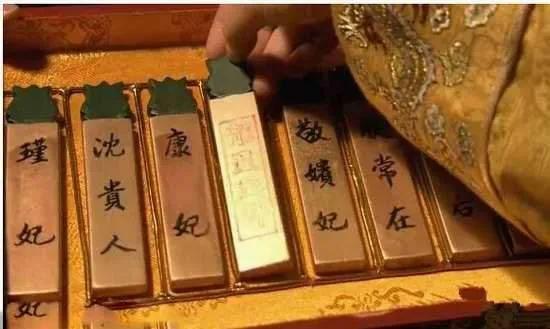 瑾妃
沈貴人
康妃
敬嬪妃
常在
后
妃